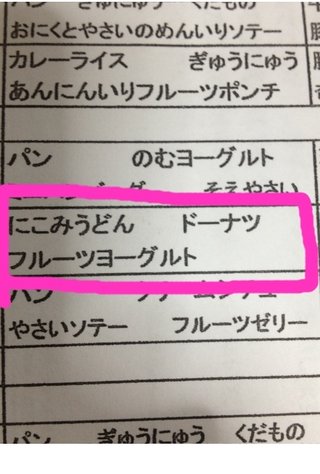 パン ぎゅうにゅう くだもの
おにくとやさいのめんいりソテー
カレーライス ぎゅうにゅう
あんにんいりフルーツポンチ
パン のむヨーグルト
そえやさい
にこみうどん ドーナツ
フルーツヨーグルト
パン
やさいソテー フルーツゼリー
パン ぎゅうにゅう くだもの